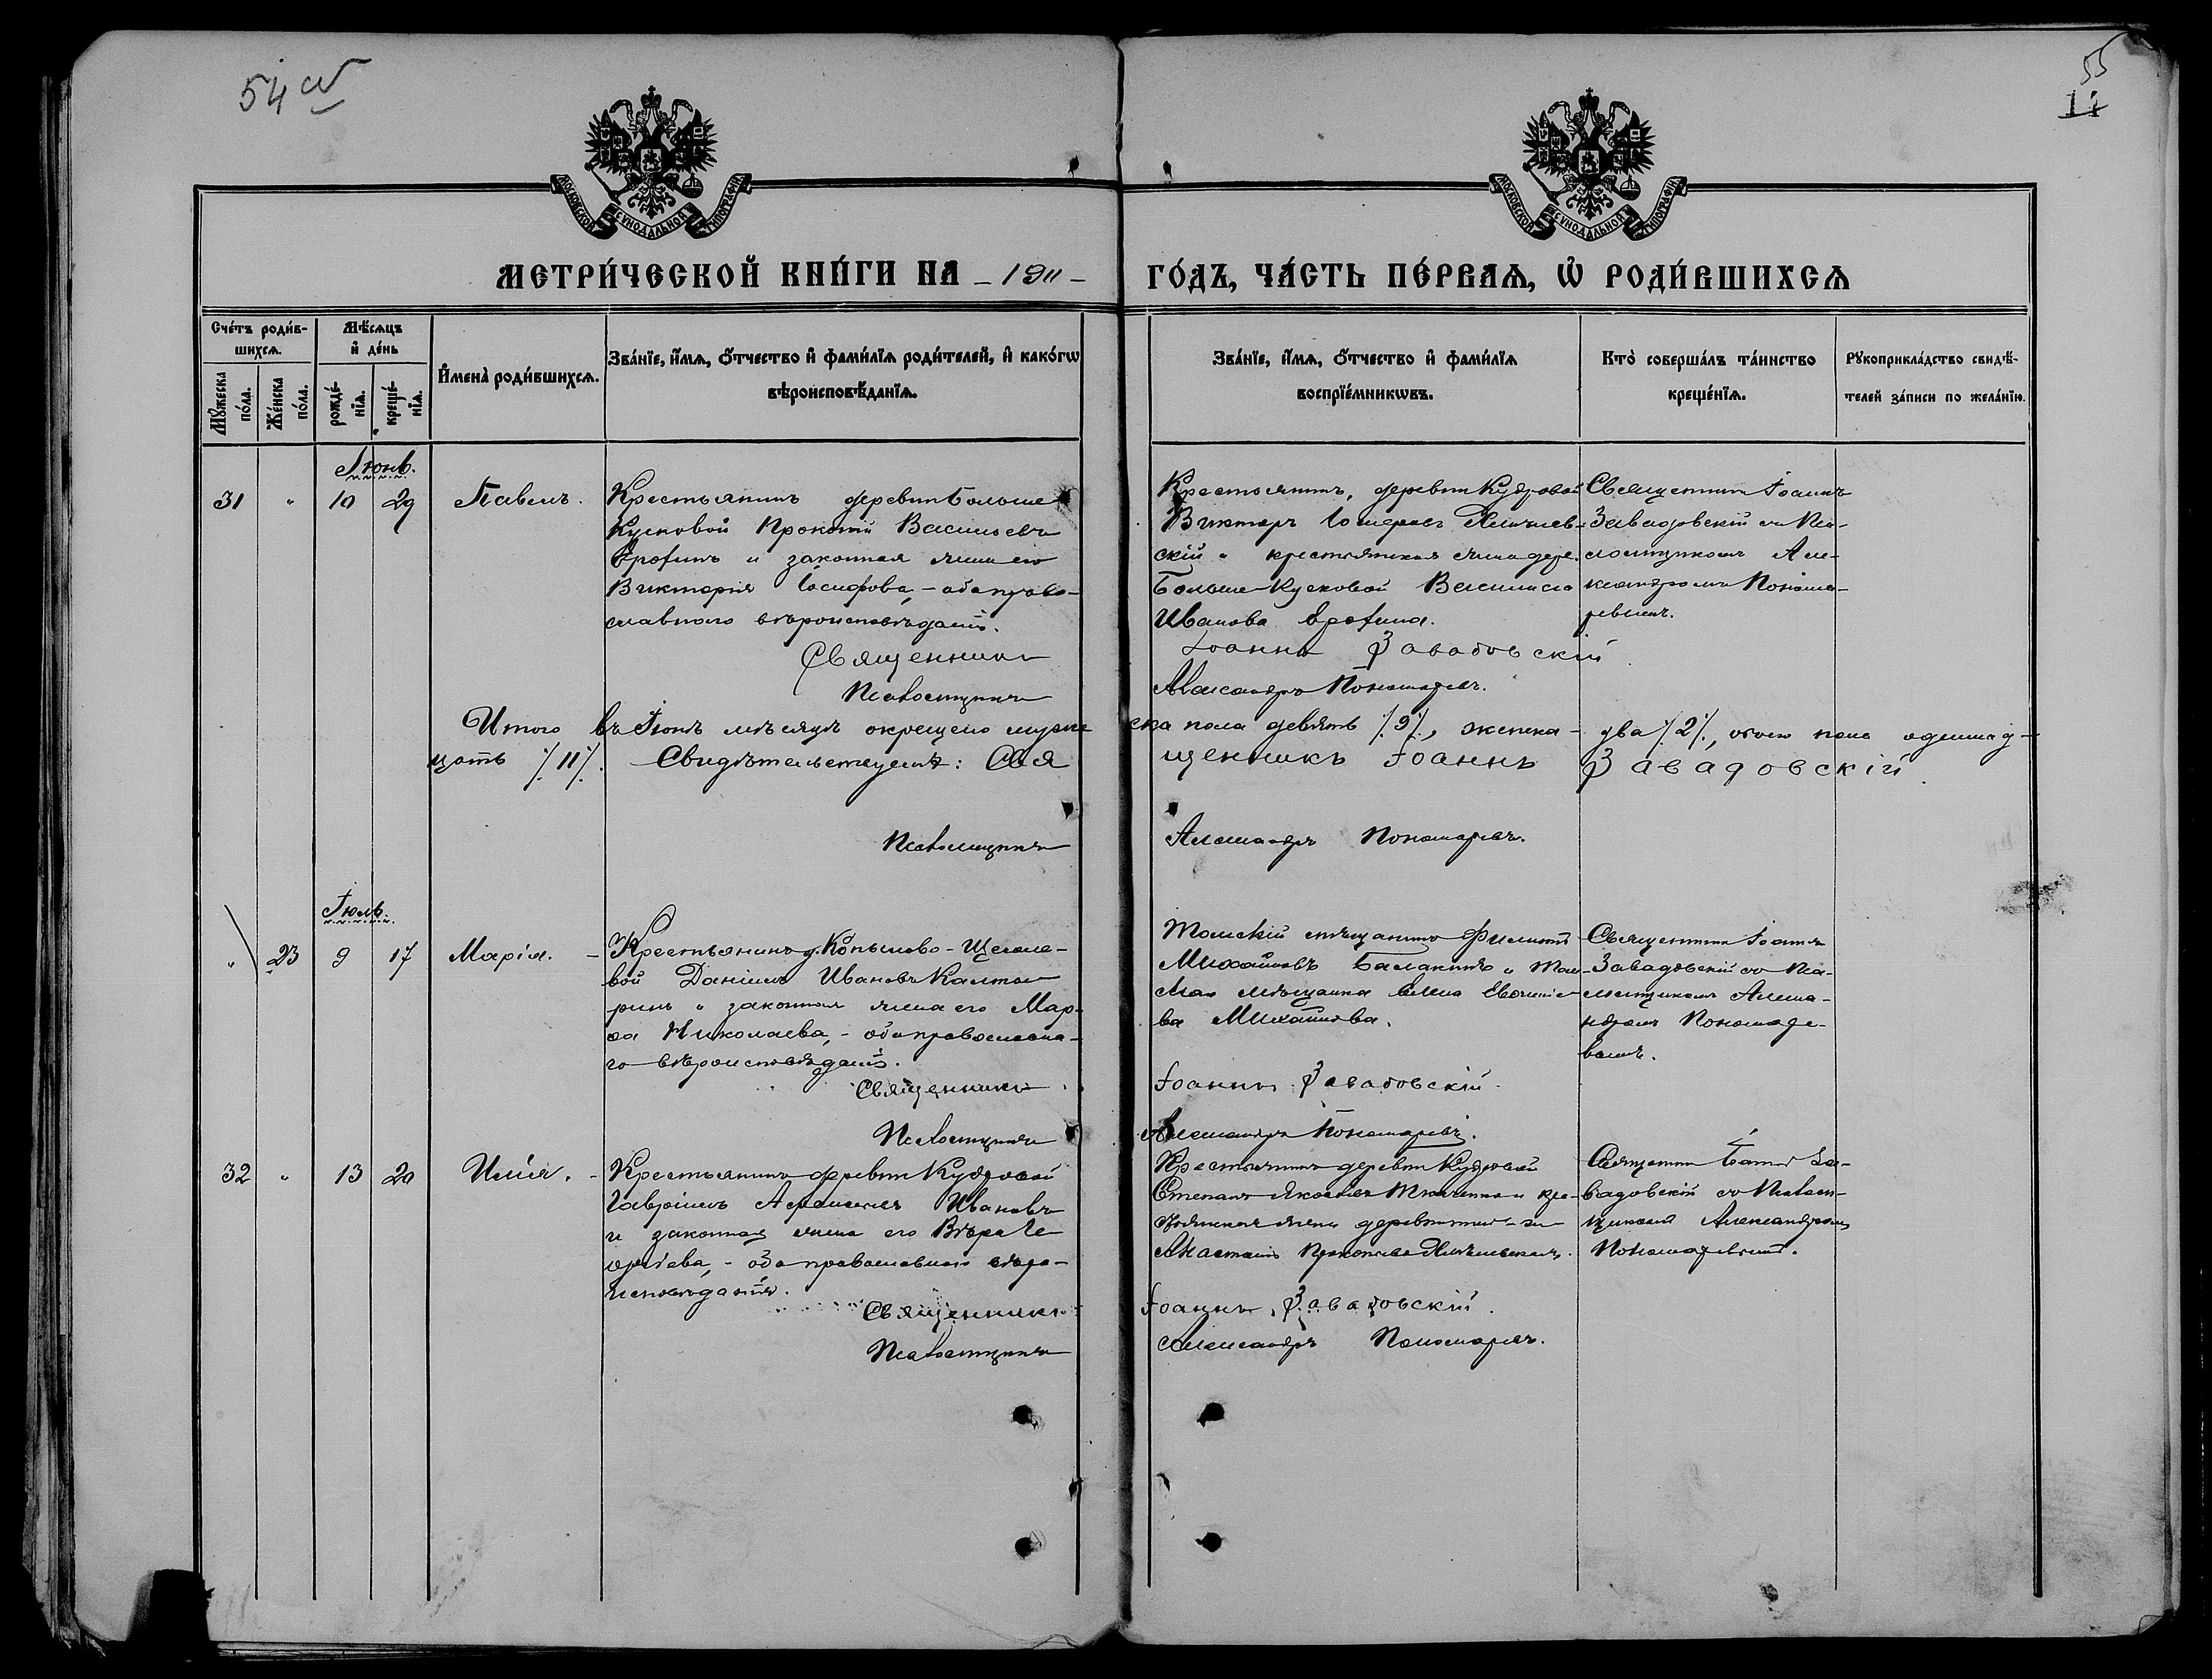 54 об
55
11
МОСКОВСКОЙ СѴНОДАЛЬНОЙ ТИПОГРАФІИ
МОСКОВСКОЙ СѴНОДАЛЬНОЙ ТИПОГРАФІИ
МЕТРИ́ЧЕСКОЙ КНИ́ГИ НА 1911
ГО́ДЪ, ЧА́СТЬ ПЕ́РВАѦ, Ѡ҆ РОДИ́ВШИХСѦ
Сче́тъ роди́в-
шихсѧ.
Мꙋ́жеска
по́ла.
Же́нска
по́ла.
Мѣ́сѧцъ
и҆ де́нь
рожде́-
нїѧ.
креще́-
нїѧ.
И҆мена̀ роди́вшихсѧ.
Зва́нїе, и҆́мѧ, ѻ҆́тчество и҆ фами́лїѧ роди́телей, и҆ како́гѡ
вѣроисповѣ́данїѧ.
Зва́нїе, и҆́мѧ, ѻ҆́тчество и҆ фами́лїѧ
воспрїе́мникѡвъ.
Кто̀ соверша́лъ та́инство
креще́нїѧ.
Рꙋкоприкла́дство свидѣ́-
телей за́писи по жела́нїю.
Іюнь.
31 " 10 29 Павелъ.
Крестьянинъ деревни Больше
Кусковой Прокопій Васильевъ
Ерофинъ и законная жена его
Викторія Іосифова, - оба право-
славнаго вѣроисповѣданія.
Священникъ
Псаломщикъ
Крестьянинъ, деревни Кудровой
Викторъ
скій и крестьянская жена дере.
Больше-Кусковой Василиса
Иванова Ерофина.
Іоаннъ Завадовскій
Александръ Пономаревъ.
Священникъ Іоаннъ
Завадовскій съ Пса-
ломщикомъ Але-
ксандромъ Понома-
ревымъ.
Итого въ Іюнѣ мѣсяцѣ окрещено муже
ска пола девять /9/, женска - два /2/, обоего пола одиннад-
цать /11/. Свидѣтельствуемъ: Свя
щенникъ Іоаннъ Завадовскій
Псаломщикъ
Александръ Пономаревъ.
Іюль.
" 23 9 17 Марія.
Крестьянинъ д. Копылово-Щегле-
вой Даніилъ Ивановъ Калма
ринъ и законная жена его Мар-
ѳа Николаева, - оба православна-
го вѣроисповѣданія.
Священникъ
Псаломщикъ
Томскій мѣщанинъ Филиппъ
Михайловъ Балакинъ и Том-
ская мѣщанка
ва Михайлова.
Іоаннъ Завадовскій
Александръ Пономаревъ.
Священникъ Іоаннъ
Завадовскій съ Пса-
ломщикомъ Алекса-
ндромъ Пономаре-
вымъ.
32 " 13 20 Илія.
Крестьянинъ деревни Кудровой
Гавріилъ Аѳанасьевъ Ивановъ
и законная жена его Вѣра Ге
оргіева, - оба православнаго вѣро-
исповѣданія.
Священникъ
Псаломщикъ
Крестьянинъ деревни Кудровой
Степанъ Яковлевъ Ткаченко и кре-
стьянская жена деревни
Анастасія Прокопьева
Іоаннъ Завадовскій.
Александръ Пономаревъ.
Священникъ Іоаннъ За-
вадовскій съ Псалом-
щикомъ Александромъ
Пономаревымъ.